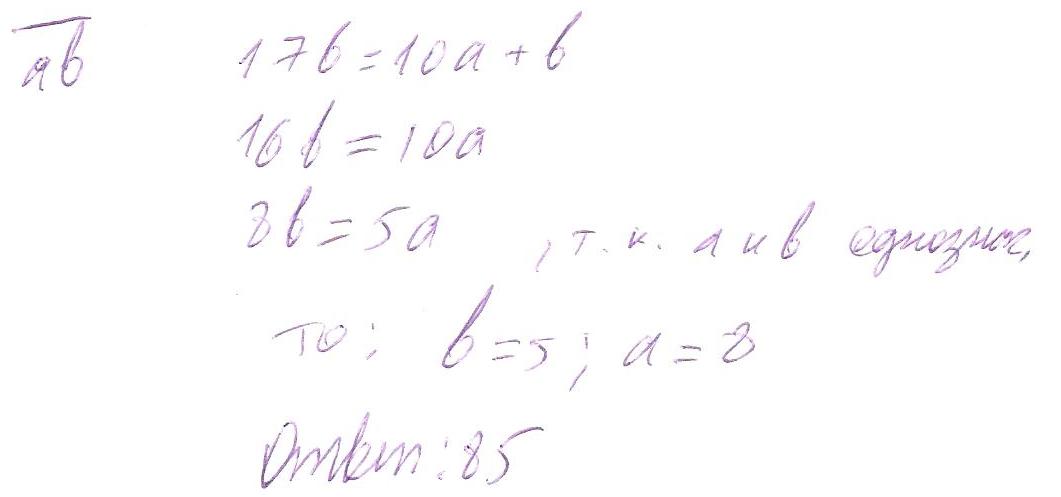 ab 17b=10a+b
16b=10a
8b=5a , т.к. a и b однознач,
то; b=5; a=8
Ответ: 85